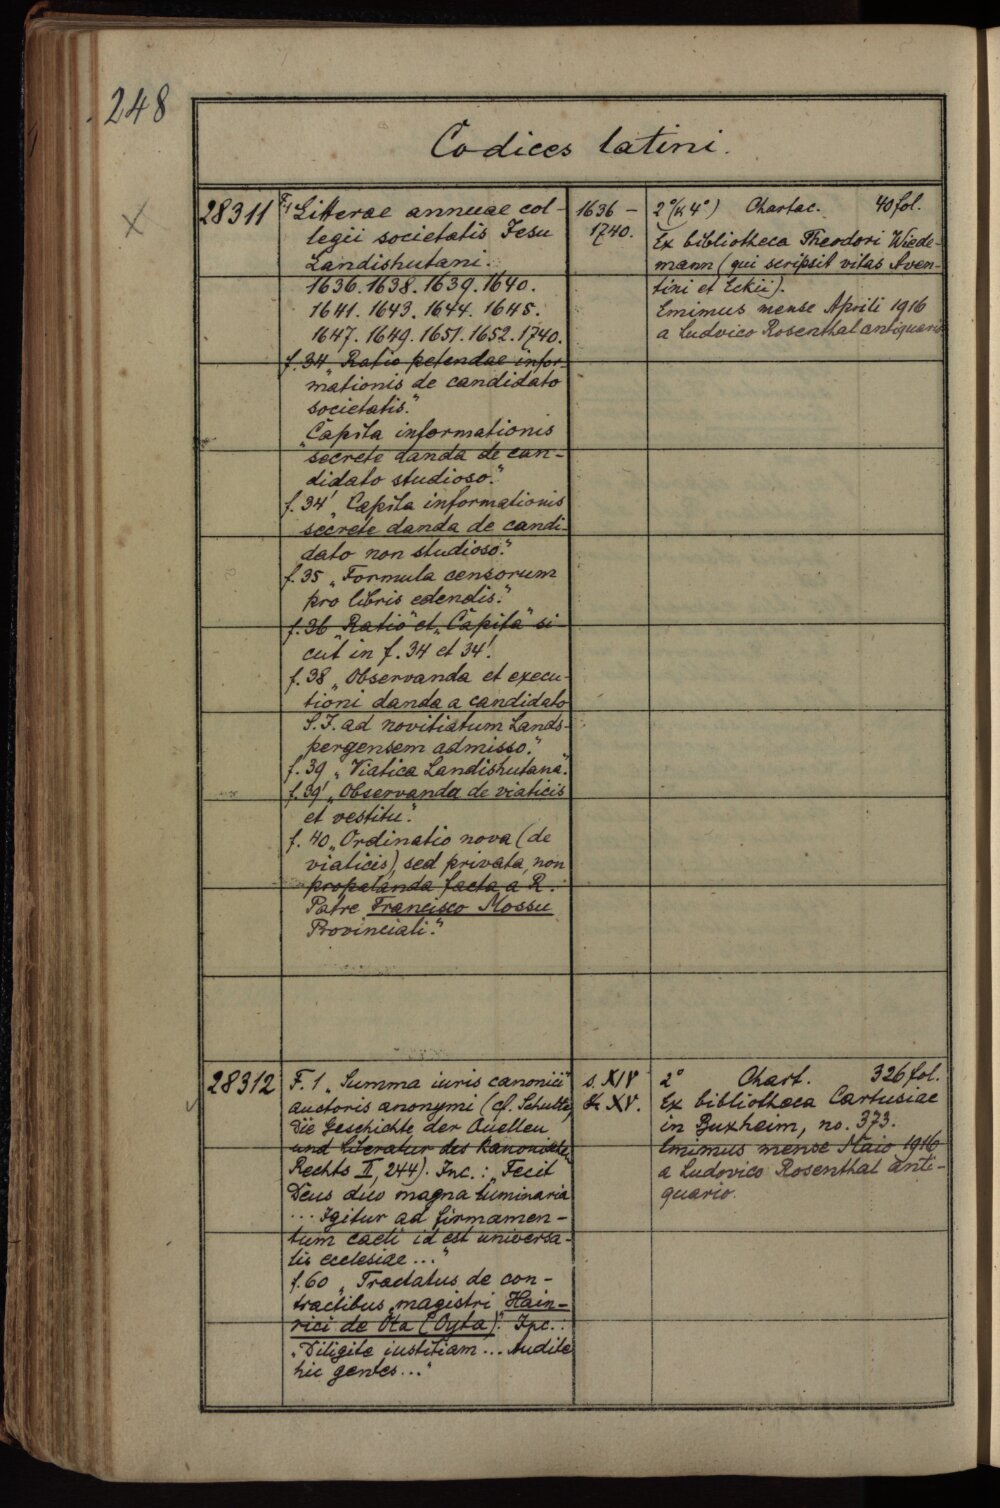 248
Codices latini.
28311
F. 1 Litterae annuae col-
legii societatis Jesu
Landishutani.
1636. 1638. 1639. 1640.
1641. 1643. 1644. 1645.
1647. 1649. 1651. 1652. 1740.
f. 34 „Ratio petendae infor-
mationis de candidato
societatis.“
„Capita informationis
secrete danda de can-
didato studioso.“
f. 34' „Capita informationis
secrete danda de candi-
dato non studioso.“
f. 35 „Formula censorum
pro libris edendis.“
f. 36 „Ratio“ et „Capita“ si-
cut in f. 34 et 34'.
f. 38 „Observanda et execu-
tioni danda a candidato
S. J. ad novitiatum Lands-
pergensem admisso.“
f. 39 „Viatica Landishutana.“
f. 39' „Observanda de viaticis
et vestitu.“
f. 40 „Ordinatio nova (de
viaticis), sed privata, non
propalanda facta a R.
Patre Francisco Mossu
Provinciali.“
1636 –
1740.
2° (& 4°) Chartac. 40 fol.
Ex bibliotheca Theodori Wiede-
mann (qui scripsit vitas Aven-
tini et Eckii).
Emimus mense Aprili 1916
a Ludovico Rosenthal antiquario
28312
F. 1 „Summa iuris canonici“
auctoris anonymi (cf. Schulte,
Die Geschichte der Quellen
und Literatur des kanonischen
Rechts II, 244). Inc.: „Fecit
Deus duo magna luminaria
... Igitur ad firmamen-
tum caeli id est universa-
lis ecclesiae ...“
f. 60 „Tractatus de con-
tractibus magistri Hain-
rici de Ota (Oyta)“. Inc.:
„Diligite iustitiam ... Audite
hic gentes ...“
s. XIV
& XV.
2° Chart. 326 fol.
Ex bibliotheca Cartusiae
in Buxheim, no. 373.
Emimus mense Maio 1916
a Ludovico Rosenthal anti-
quario.